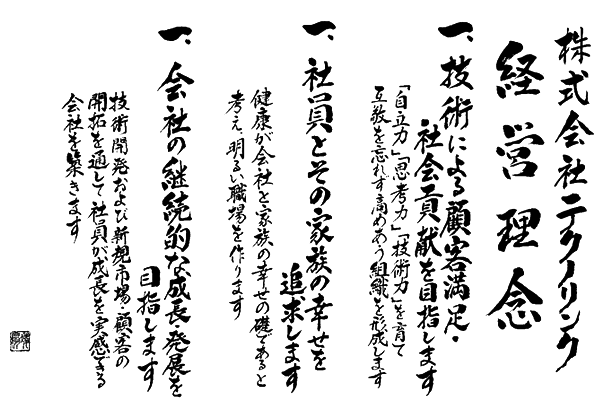 株式会社テクノリンク
経営理念
一、技術による顧客満足・
社会貢献を目指します
「自立力」「思考力」「技術力」を育て
互敬を忘れず高めあう組織を形成します
一、社員とその家族の幸せを
追求します
健康が会社と家族の幸せの礎であると
考え、明るい職場を作ります
一、会社の継続的な成長・発展を
目指します
技術開発および新規市場・顧客の
開拓を通して社員が成長を実感できる
会社を築きます